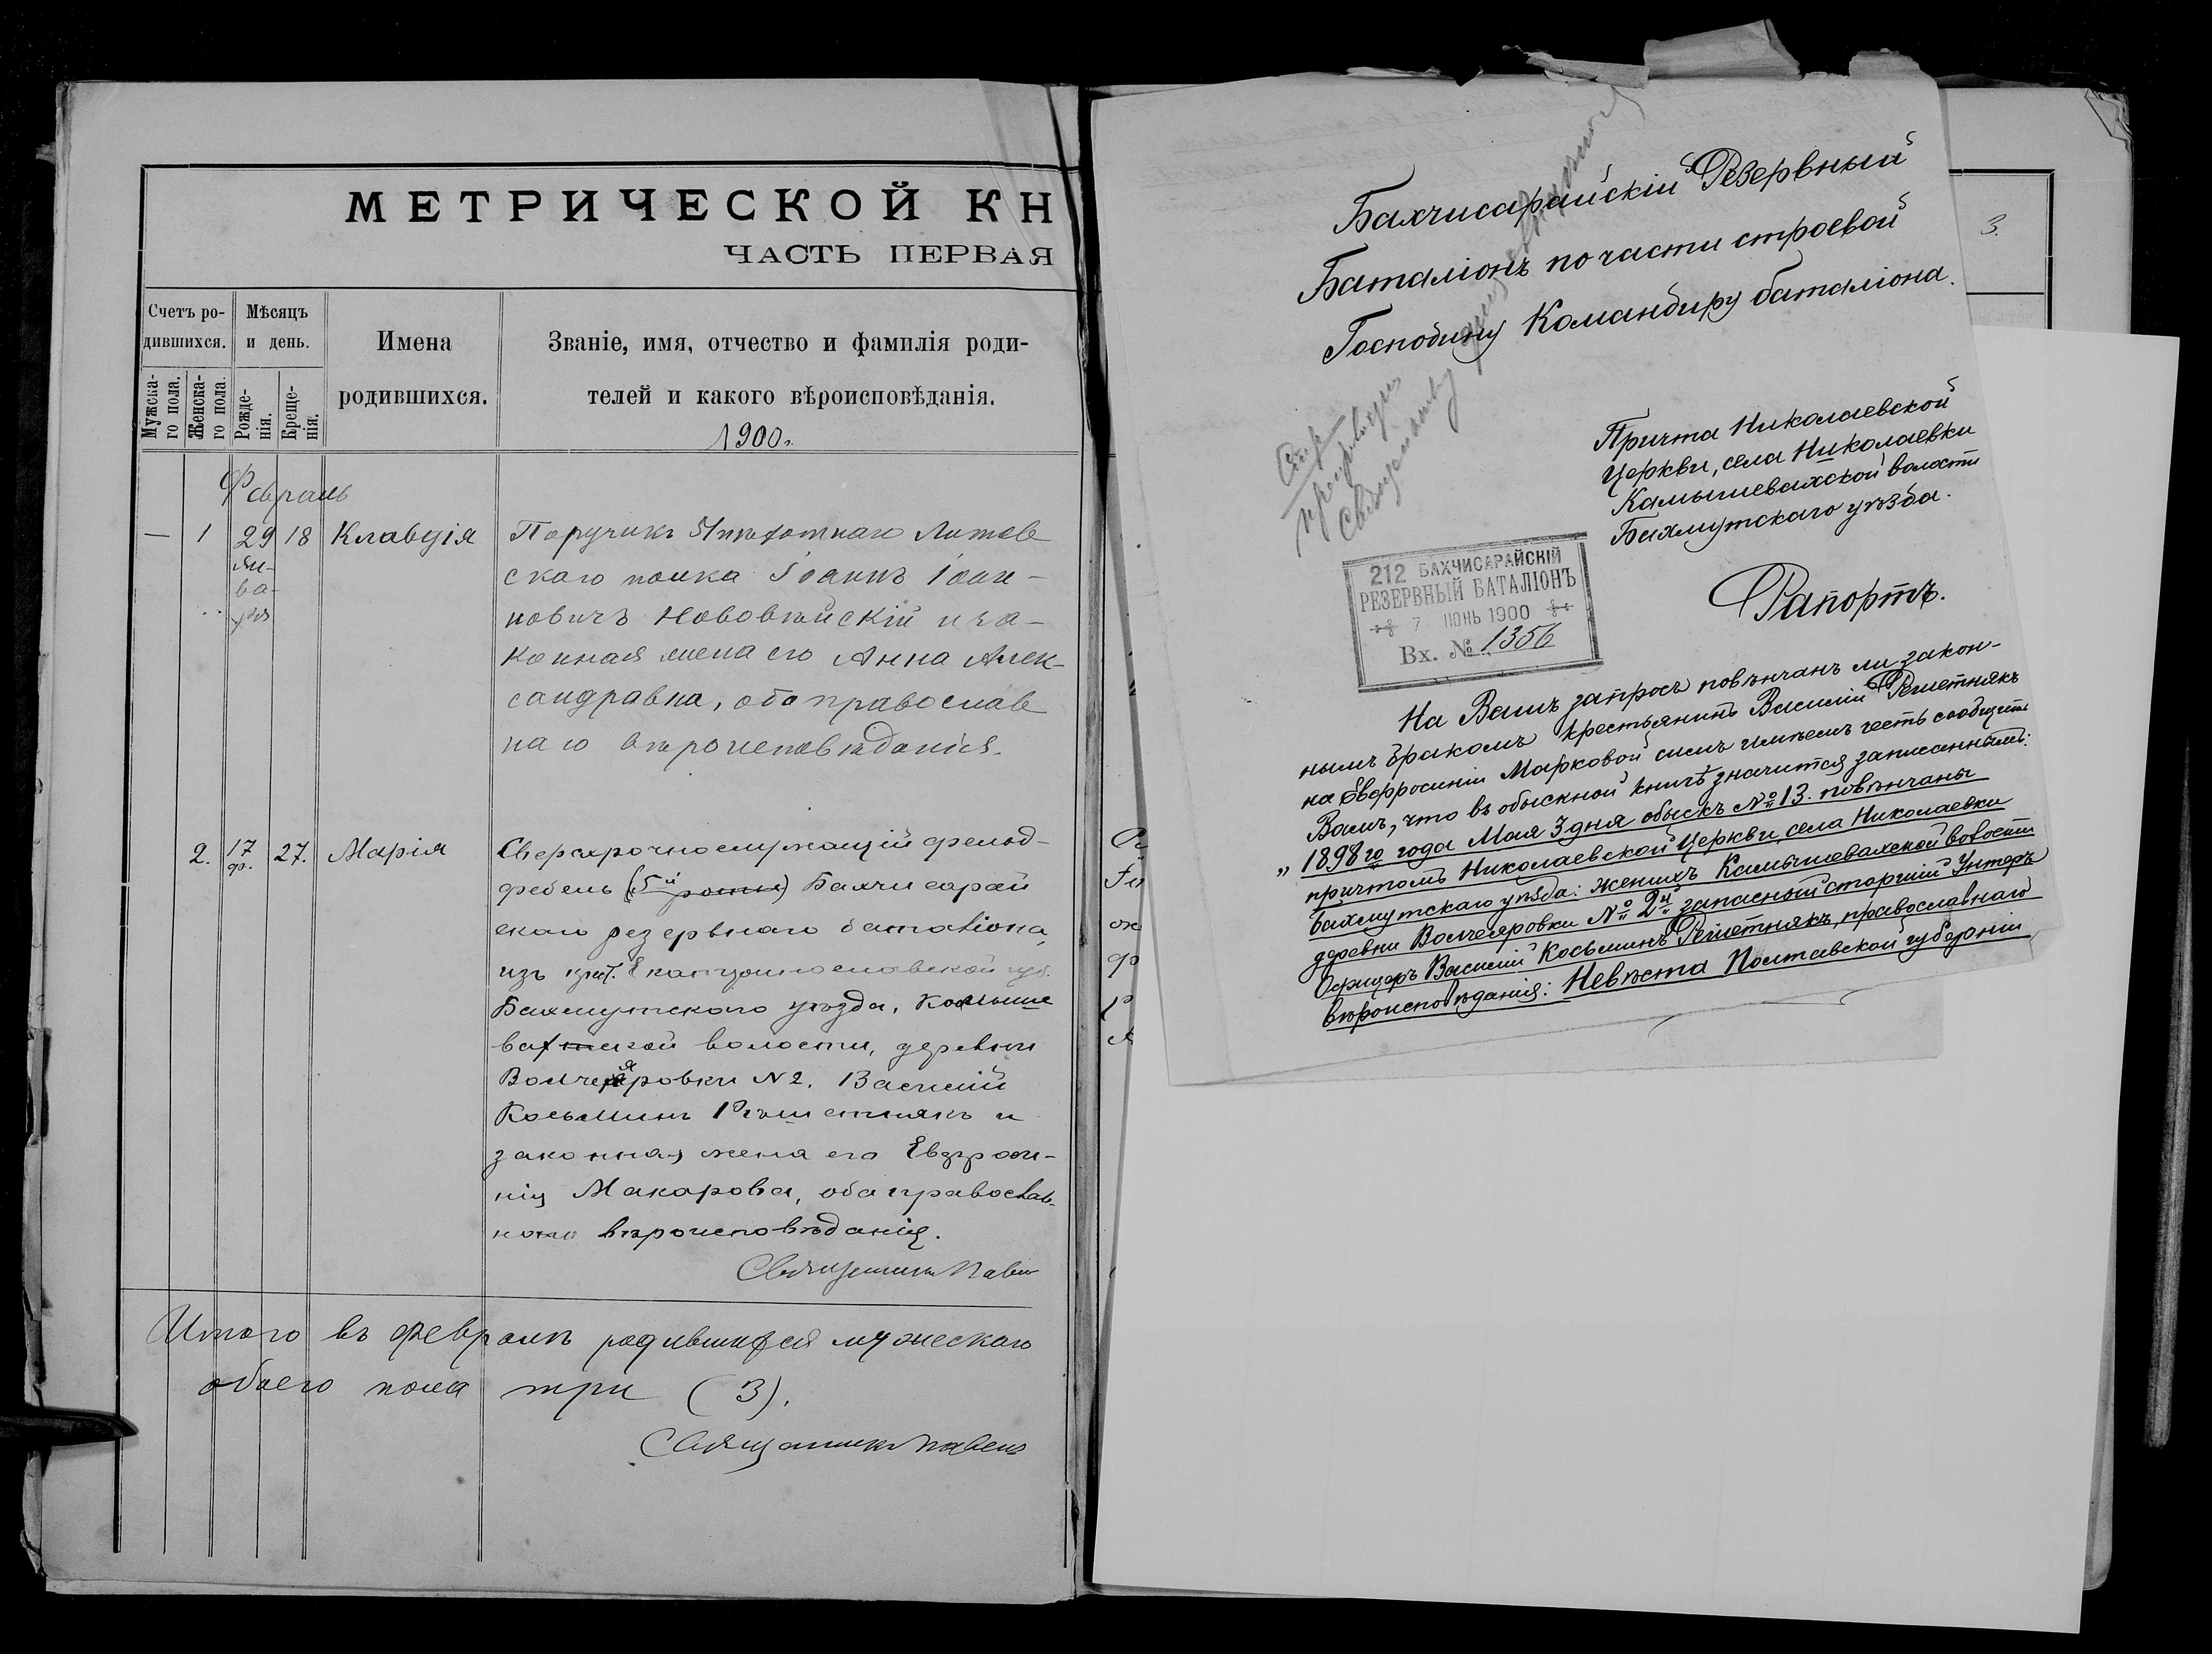 МЕТРИЧЕСКОЙ КН
ЧАСТЬ ПЕРВАЯ
Счетъ ро-
дившихся.
Мужска-
го пола.
Женска-
го пола.
Мѣсяцъ
и день.
Рожде-
нія.
Креще-
нія.
Имена
родившихся.
Званіе, имя, отчество и фамилія роди-
телей и какого вѣроисповѣданія.
1900г.
Февраль
— 1 29 18 Клавдія
Ян-
ва-
ря
Поручикъ 5 пѣхотнаго Литов
скаго полка Іоаннъ Іоан-
новичъ Нововѣйскій и за-
конная жена его Анна Алек-
сандравна, оба православ
наго вѣроисповѣданія.
2. 17 27. Марія
ф.
Сверхсрочнослужащій фельд-
фебель (5й роты) Бахчисарай
скаго резервнаго баталіона,
изъ крест. Екатеринославской губ.
Бахмутскаго уѣзда, Камыше
ватской волости, деревни
Волчеяровки № 2. Василій
Косьминъ Рѣшетнякъ и
законная жена его Евфроси-
нія Макарова, оба православ-
наго вѣроисповѣданія.
Священникъ Павел
Итого въ февралѣ родившихся мужескаго
обоего пола три (3).
Священникъ Павелъ
3.
Бахчисарайскій Резервный
Баталіонъ по части строевой
Господину Командиру баталіона.
Причта Николаевской
Церкви, села Николаевки
Камышевахской волости
Бахмутскаго уѣзда.
212 БАХЧИСАРАЙСКІЙ
РЕЗЕРВНЫЙ БАТАЛІОНЪ
7 ІЮНЬ 1900
Вх. № 1356
Рапортъ.
На Вашъ запросъ повѣнчанъ ли закон-
нымъ бракомъ крестьянинъ Василій Решетнякъ
на Евфросиніи Марковой симъ имѣемъ честь сообщить
Вамъ, что въ обыскной книгѣ значится записаннымъ:
„ 1898го года Мая 3 дня обыскъ № 13. повѣнчаны
причтомъ Николаевской Церкви, села Николаевки
Бахмутскаго уѣзда: женихъ Камышевахской волости
деревни Волчеяровки № 2й запасный старшій Унтеръ
Офицеръ Василій Косьминъ Решетнякъ, православнаго
вѣроисповѣданія: Невѣста Полтавской губерніи